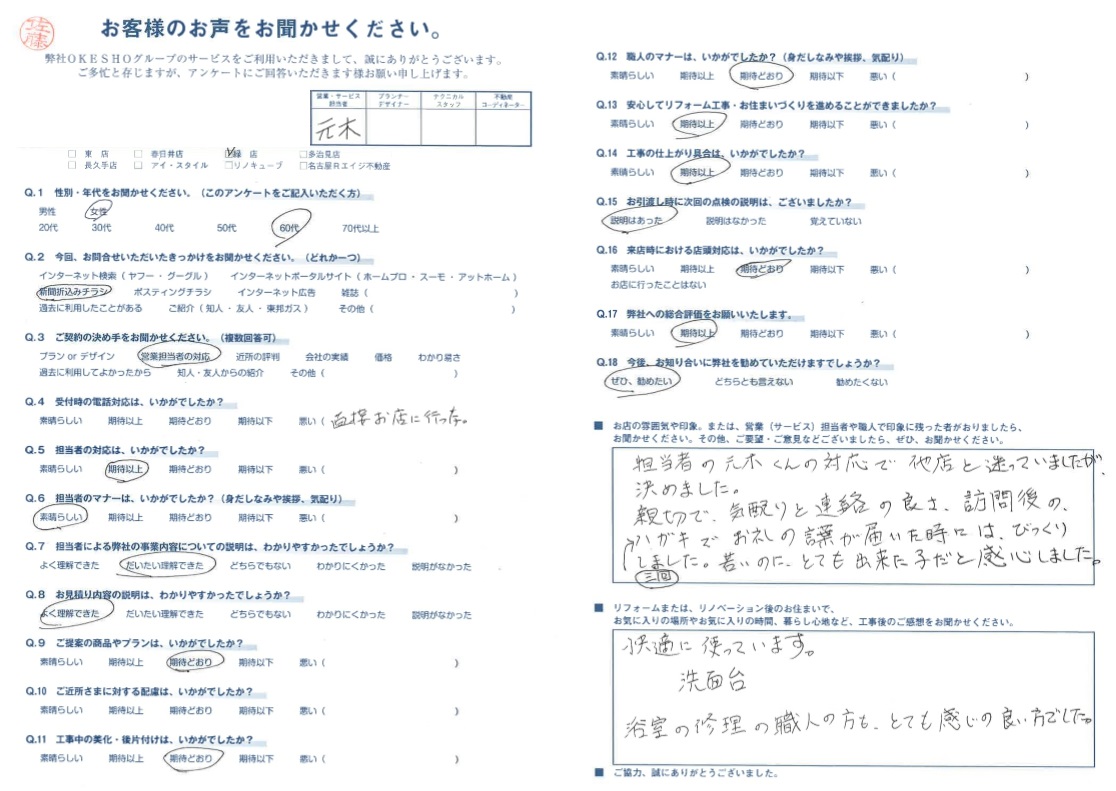 佐藤
お客様のお声をお聞かせください。
弊社OKESHOグループのサービスをご利用いただきまして、誠にありがとうございます。
ご多忙と存じますが、アンケートにご回答いただきます様お願い申し上げます。
営業・サービス担当者 プランナーデザイナー テクニカルスタッフ 不動産コーディネーター
元木
□ 東 店 □ 春日井店 ☑緑 店 □多治見店
□ 長久手店 □ アイ・スタイル □リノキューブ □名古屋Rエイジ不動産
Q.1 性別・年代をお聞かせください。（このアンケートをご記入いただく方）
男性 女性
20代 30代 40代 50代 60代 70代以上
Q.2 今回、お問合せいただいたきっかけをお聞かせください。（どれか一つ）
インターネット検索（ ヤフー・グーグル ） インターネットポータルサイト（ ホームプロ・スーモ・アットホーム ）
新聞折込みチラシ ポスティングチラシ インターネット広告 雑誌（ ）
過去に利用したことがある ご紹介（ 知人・友人・東邦ガス ） その他（ ）
Q.3 ご契約の決め手をお聞かせください。（複数回答可）
プラン or デザイン 営業担当者の対応 近所の評判 会社の実績 価格 わかり易さ
過去に利用してよかったから 知人・友人からの紹介 その他（ ）
Q.4 受付時の電話対応は、いかがでしたか？
素晴らしい 期待以上 期待どおり 期待以下 悪い（ 直接お店に行った。
Q.5 担当者の対応は、いかがでしたか？
素晴らしい 期待以上 期待どおり 期待以下 悪い（ ）
Q.6 担当者のマナーは、いかがでしたか？（身だしなみや挨拶、気配り）
素晴らしい 期待以上 期待どおり 期待以下 悪い（ ）
Q.7 担当者による弊社の事業内容についての説明は、わかりやすかったでしょうか？
よく理解できた だいたい理解できた どちらでもない わかりにくかった 説明がなかった
Q.8 お見積り内容の説明は、わかりやすかったでしょうか？
よく理解できた だいたい理解できた どちらでもない わかりにくかった 説明がなかった
Q.9 ご提案の商品やプランは、いかがでしたか？
素晴らしい 期待以上 期待どおり 期待以下 悪い（ ）
Q.10 ご近所さまに対する配慮は、いかがでしたか？
素晴らしい 期待以上 期待どおり 期待以下 悪い（ ）
Q.11 工事中の美化・後片付けは、いかがでしたか？
素晴らしい 期待以上 期待どおり 期待以下 悪い（ ）
Q.12 職人のマナーは、いかがでしたか？（身だしなみや挨拶、気配り）
素晴らしい 期待以上 期待どおり 期待以下 悪い（ ）
Q.13 安心してリフォーム工事・お住まいづくりを進めることができましたか？
素晴らしい 期待以上 期待どおり 期待以下 悪い（ ）
Q.14 工事の仕上がり具合は、いかがでしたか？
素晴らしい 期待以上 期待どおり 期待以下 悪い（ ）
Q.15 お引渡し時に次回の点検の説明は、ございましたか？
説明はあった 説明はなかった 覚えていない
Q.16 来店時における店頭対応は、いかがでしたか？
素晴らしい 期待以上 期待どおり 期待以下 悪い（ ）
お店に行ったことはない
Q.17 弊社への総合評価をお願いいたします。
素晴らしい 期待以上 期待どおり 期待以下 悪い（ ）
Q.18 今後、お知り合いに弊社を勧めていただけますでしょうか？
ぜひ、勧めたい どちらとも言えない 勧めたくない
■ お店の雰囲気や印象。または、営業（サービス）担当者や職人で印象に残った者がおりましたら、
お聞かせください。その他、ご要望・ご意見などございましたら、ぜひ、お聞かせください。
担当者の元木くんの対応で他店と迷っていましたが、
決めました。
親切で、気配りと連絡の良さ、訪問後の、
ハガキでお礼の言葉が届いた時には、びっくり
しました。若いのに、とても出来た子だと感心しました。
三回
■ リフォームまたは、リノベーション後のお住まいで、
お気に入りの場所やお気に入りの時間、暮らし心地など、工事後のご感想をお聞かせください。
快適に使っています。
洗面台
浴室の修理の職人の方も、とても感じの良い方でした。
■ ご協力、誠にありがとうございました。